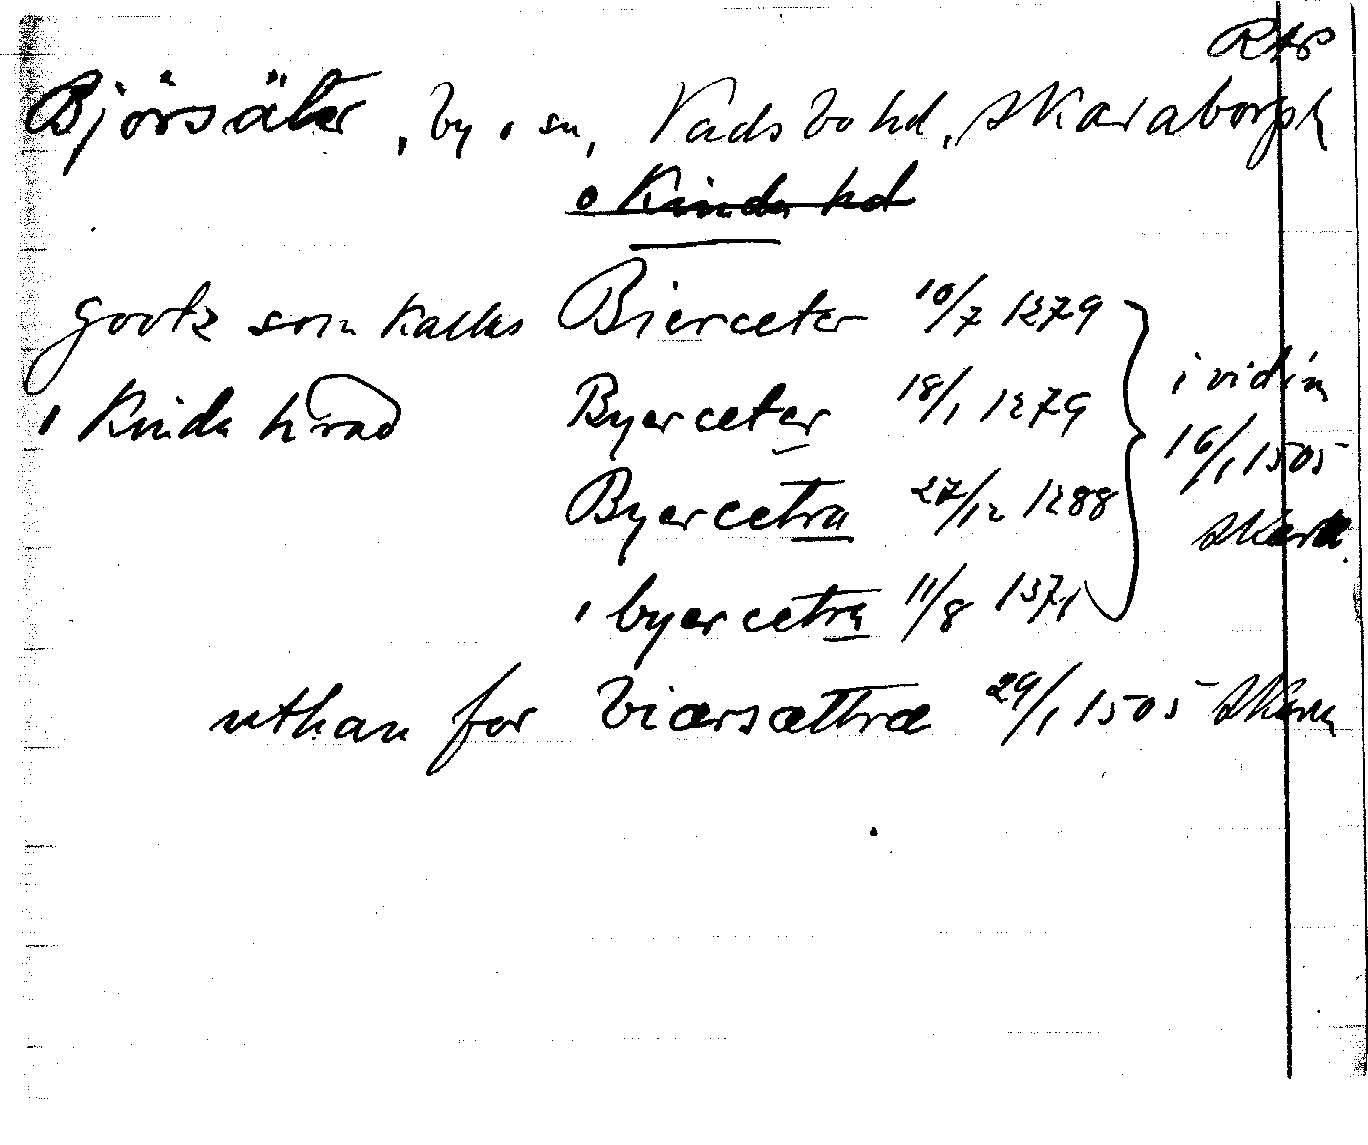 RAP
Björsäter, by o sn, Vadsbo hd, Skaraborgs l
o Kinda hd
gootz som kalles Bierceter 10/7 1279
i Kinda hrad Byerceter 18/1 1279 i vidim
Byercetra 27/12 1288 16/1 1505
i byercetra 11/8 1371 Skara
uthan for biærsættræ 29/1 1505 Skara